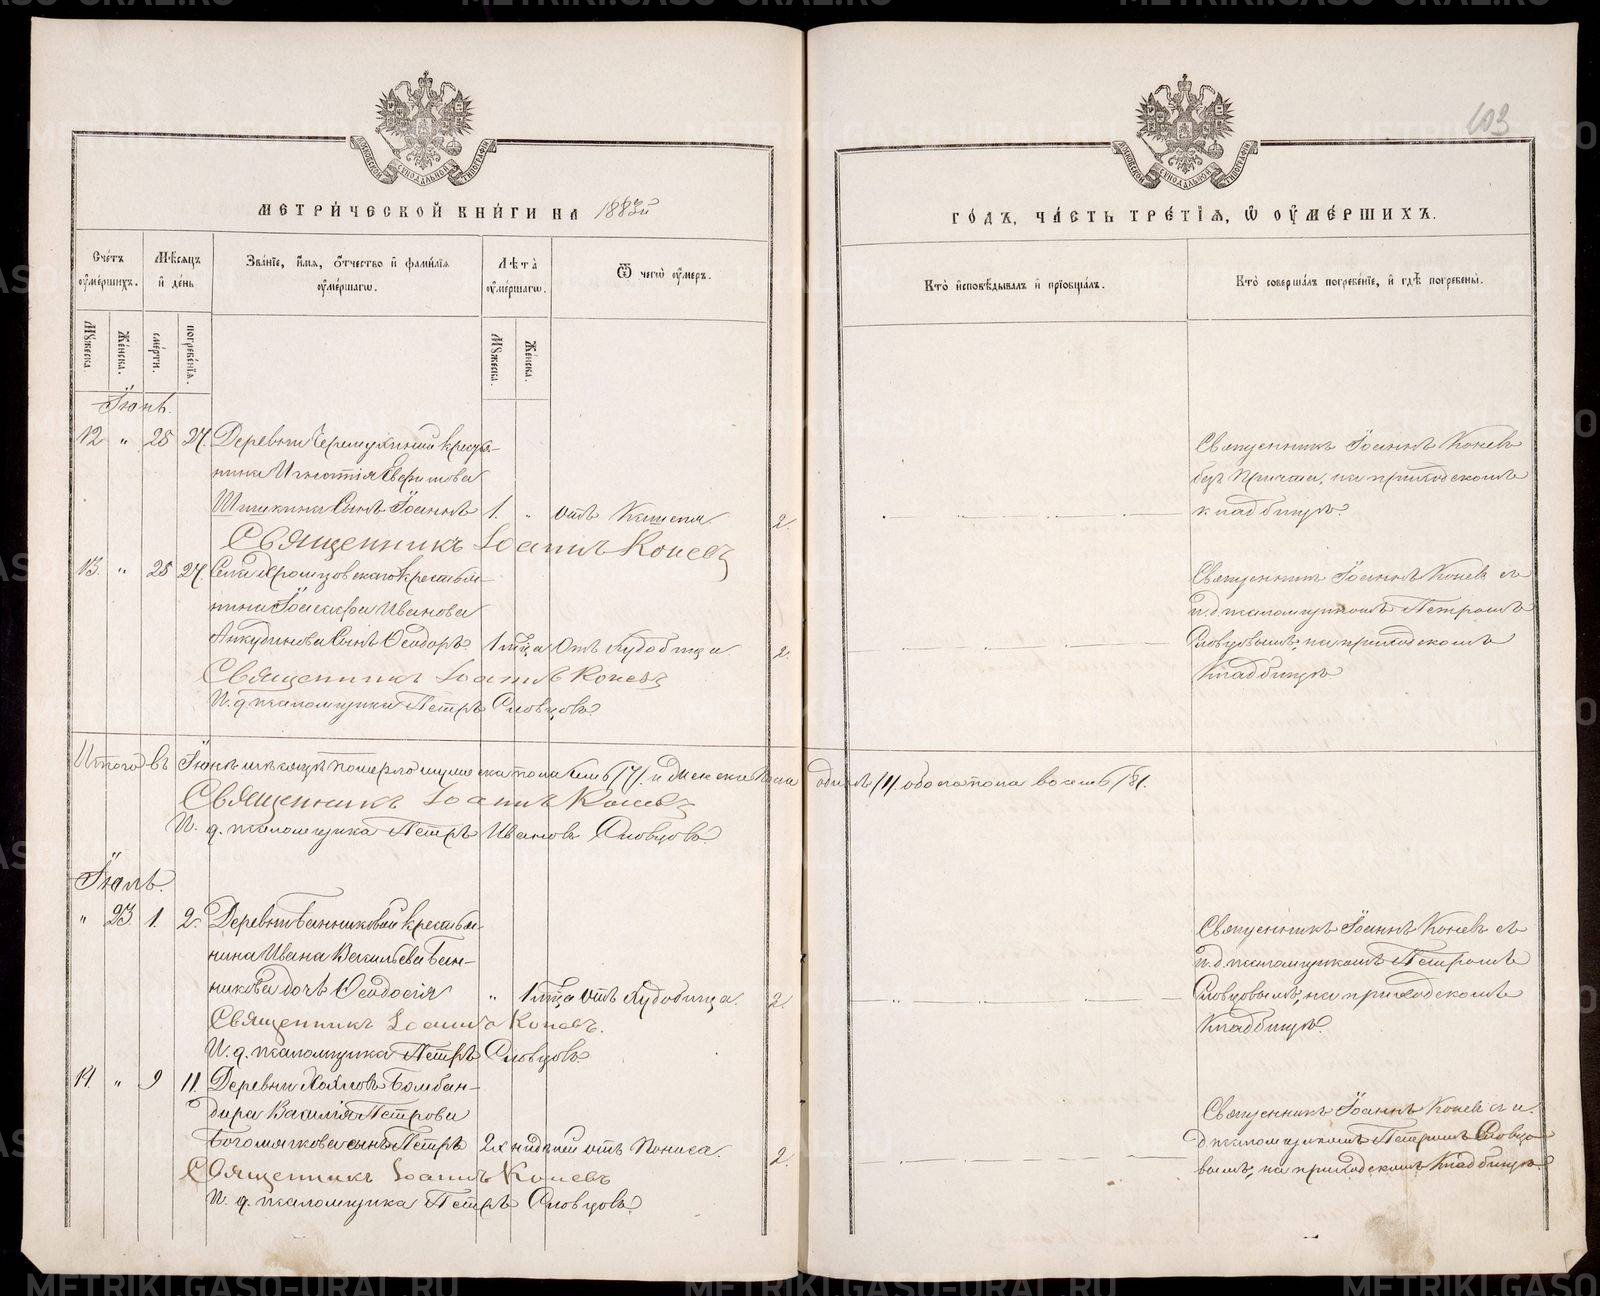 МЕТРИ́ЧЕСКОЙ КНИ́ГИ НА 1883й
Сче́тъ оу҆ме́ршихъ.
Мѣ́сяцъ и҆ де́нь
Зва́нїе, и҆́мя, ѻ҆́тчество и҆ фами́лїя оу҆ме́ршагѡ.
Лѣ́та̀ оу҆ме́ршагѡ.
Ѿ чегѡ̀ оу҆́меръ.
Мꙋ́жеска.
Же́нска.
сме́рти.
погребе́нїя.
Мꙋ́жеска.
Же́нска.
Іюнь.
12 " 25 27. Деревни Черемухиной крестья-
нина Игнатія
Шишкина сынъ Іоаннъ 1. " отъ Кашеля. 2.
Священникъ Іоаннъ Коневъ
13. " 25 27. Села Хромцовскаго крестья-
нина Іоасафа Иванова
Анкудинова сынъ Ѳеодоръ. 1 мца Отъ Худобища. 2.
Священникъ Іоаннъ Коневъ
И. д. псаломщика Петръ Словцовъ.
Итого въ Іюнѣ мѣсяцѣ померло мужеска пола семь /7/. и женска пола одинъ /1/. обоего пола восемь /8/.
Священникъ Іоаннъ Коневъ
И. д. псаломщика Петръ Ивановъ Словцовъ
Іюль.
" 23. 1. 2. Деревни Банниковой крестья-
нина Ивана Васильева Бан-
никова дочь Ѳеодосія " 1 мца отъ Худобища. 2.
Священникъ Іоаннъ Коневъ.
И. д. псаломщика Петръ Словцовъ.
14. " 9 11. Деревни Бомбан-
дира Василія Петрова
Богомягкова сынъ Петръ 2х недѣль отъ Поноса. 2.
Священникъ Іоаннъ Коневъ
И. д. псаломщика Петръ Словцовъ
103
ГО́ДЪ, ЧА́СТЬ ТРЕ́ТЇЯ, Ѡ҆ ОУ҆МЕ́РШИХЪ.
Кто̀ и҆сповѣ́дывалъ и҆ прїѻбща́лъ.
Кто̀ соверша́лъ погребе́нїе, и҆ гдѣ̀ погребены̀.
Священникъ Іоаннъ Коневъ
безъ Причта, на приходскомъ
кладбищѣ.
Священникъ Іоаннъ Коневъ съ
и. д. псаломщикомъ Петромъ
Словцовымъ, на приходскомъ
Кладбищѣ
Священникъ Іоаннъ Коневъ съ
и. д. псаломщикомъ Петромъ
Словцовымъ, на приходскомъ
Кладбищѣ.
Священникъ Іоаннъ Коневъ съ и.
д. псаломщикомъ Петромъ Словцо-
вымъ, на приходскомъ Кладбищѣ.
METRIKI.GASO-URAL.RU